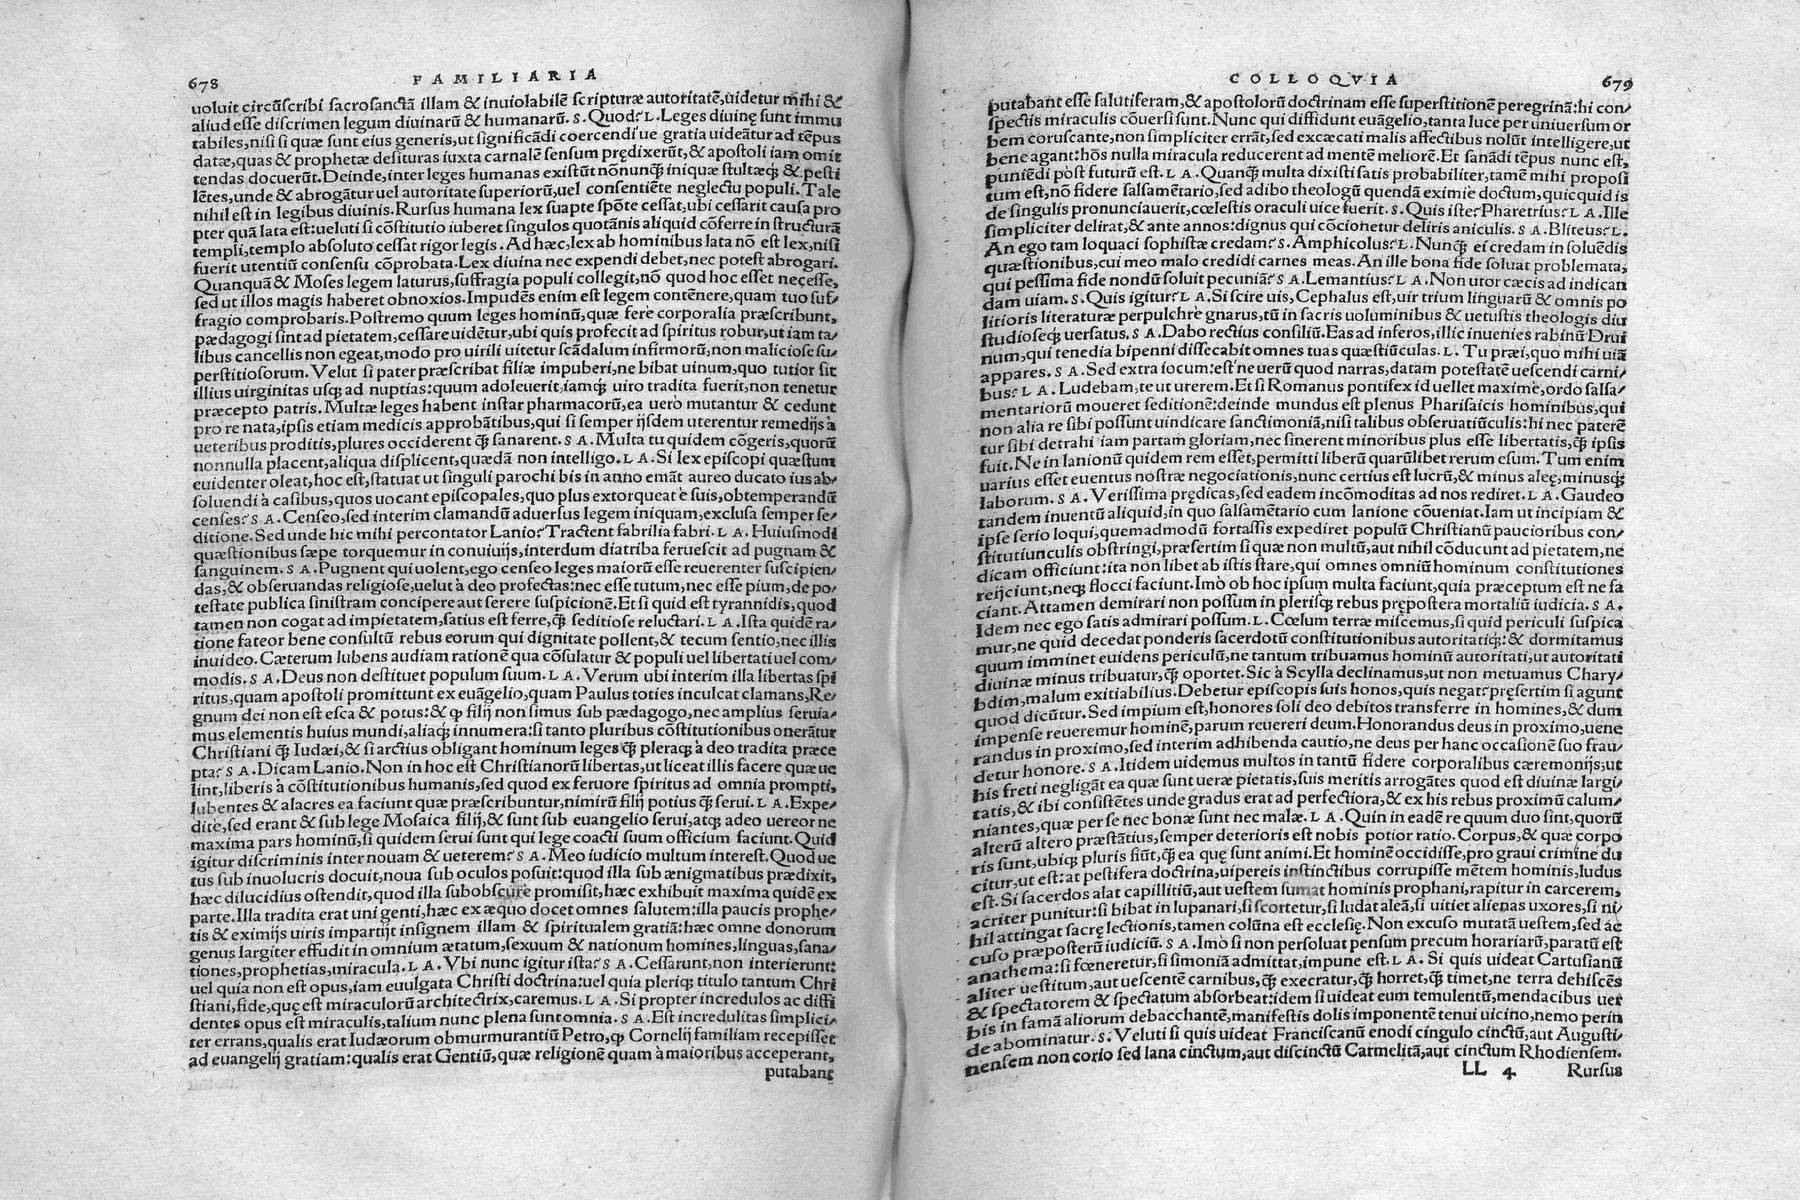 678 FAMILIARIA
uoluit circũscribi sacrosanctã illam & inuiolabilẽ scripturæ autoritatẽ, uidetur mihi &
aliud esse discrimen legum diuinarũ & humanarũ. S. Quod? L. Leges diuinę sunt immu
tabiles, nisi si quæ sunt eius generis, ut significãdi coercendi ue gratia uideãtur ad tẽpus
datæ, quas & prophetæ desituras iuxta carnalẽ sensum prędixerũt, & apostoli iam omit
tendas docuerũt. Deinde, inter leges humanas existũt nõnunꝗ̃ iniquæ stultæꝗ & pesti
lẽtes, unde & abrogãtur uel autoritate superiorũ, uel consentiẽte neglectu populi. Tale
nihil est in legibus diuinis. Rursus humana lex suapte spõte cessat, ubi cessarit causa pro
pter quã lata est: ueluti si cõstitutio iuberet singulos quotãnis aliquid cõferre in structurã
templi, templo absoluto cessat rigor legis. Ad hæc, lex ab hominibus lata nõ est lex, nisi
fuerit utentiũ consensu cõprobata. Lex diuina nec expendi debet, nec potest abrogari.
Quanquã & Moses legem laturus, suffragia populi collegit, nõ quod hoc esset necesse,
sed ut illos magis haberet obnoxios. Impudẽs enim est legem contẽnere, quam tuo suf⸗
fragio comprobaris. Postremo quum leges hominũ, quæ fere corporalia præscribunt,
pædagogi sint ad pietatem, cessare uidẽtur, ubi quis profecit ad spiritus robur, ut iam ta⸗
libus cancellis non egeat, modo pro uirili uitetur scãdalum infirmorũ, non maliciose su⸗
perstitiosorum. Velut si pater præscribat filiæ impuberi, ne bibat uinum, quo tutior sit
illius uirginitas usꝗ ad nuptias: quum adoleuerit, iamꝗ uiro tradita fuerit, non tenetur
præcepto patris. Multæ leges habent instar pharmacorũ, ea uero mutantur & cedunt
pro re nata, ipsis etiam medicis approbãtibus, qui si semper ijsdem uterentur remedijs à
ueteribus proditis, plures occiderent ꝗ̃ sanarent. S A. Multa tu quidem cõgeris, quorũ
nonnulla placent, aliqua displicent, quædã non intelligo. L A. Si lex episcopi quæstum
euidenter oleat, hoc est, statuat ut singuli parochi bis in anno emãt aureo ducato ius ab⸗
soluendi à casibus, quos uocant episcopales, quo plus extorqueat è suis, obtemperandũ
censes? S A. Censeo, sed interim clamandũ aduersus legem iniquam, exclusa semper se⸗
ditione. Sed unde hic mihi percontator Lanio? Tractent fabrilia fabri. L A. Huiusmodi
quæstionibus sæpe torquemur in conuiuijs, interdum diatriba feruescit ad pugnam &
sanguinem. S A. Pugnent qui uolent, ego censeo leges maiorũ esse reuerenter suscipien⸗
das, & obseruandas religiose, uelut à deo profectas: nec esse tutum, nec esse pium, de po⸗
testate publica sinistram concipere aut serere suspicionẽ. Et si quid est tyrannidis, quod
tamen non cogat ad impietatem, satius est ferre, ꝗ̃ seditiose reluctari. L A. Ista quidẽ ra⸗
tione fateor bene consultũ rebus eorum qui dignitate pollent, & tecum sentio, nec illis
inuideo. Cæterum lubens audiam rationẽ qua cõsulatur & populi uel libertati uel com⸗
modis. S A. Deus non destituet populum suum. L A. Verum ubi interim illa libertas spi
ritus, quam apostoli promittunt ex euãgelio, quam Paulus toties inculcat clamans, Re⸗
gnum dei non est esca & potus: & ꝙ filij non simus sub pædagogo, nec amplius seruia⸗
mus elementis huius mundi, aliaꝗ innumera: si tanto pluribus cõstitutionibus onerãtur
Christiani ꝗ̃ Iudæi, & si arctius obligant hominum leges ꝗ̃ pleraꝗ à deo tradita præce
pta? S A. Dicam Lanio. Non in hoc est Christianorũ libertas, ut liceat illis facere quæ ue
lint, liberis à cõstitutionibus humanis, sed quod ex feruore spiritus ad omnia prompti,
lubentes & alacres ea faciunt quæ præscribuntur, nimirũ filij potius ꝗ̃ serui. L A. Expe⸗
dite, sed erant & sub lege Mosaica filij, & sunt sub euangelio serui, atꝗ adeo uereor ne
maxima pars hominũ, si quidem serui sunt qui lege coacti suum officium faciunt. Quid
igitur discriminis inter nouam & ueterem? S A. Meo iudicio multum interest. Quod ue
tus sub inuolucris docuit, noua sub oculos posuit: quod illa sub ænigmatibus prædixit,
hæc dilucidius ostendit, quod illa subobscure promisit, hæc exhibuit maxima quidẽ ex
parte. Illa tradita erat uni genti, hæc ex æquo docet omnes salutem: illa paucis prophe⸗
tis & eximijs uiris impartijt insignem illam & spiritualem gratiã: hæc omne donorum
genus largiter effudit in omnium ætatum, sexuum & nationum homines, linguas, sana⸗
tiones, prophetias, miracula. L A. Vbi nunc igitur ista? S A. Cessarunt, non interierunt:
uel quia non est opus, iam euulgata Christi doctrina: uel quia pleriꝗ titulo tantum Chri
stiani, fide, quę est miraculorũ architectrix, caremus. L A. Si propter incredulos ac diffi
dentes opus est miraculis, talium nunc plena sunt omnia. S A. Est incredulitas simplici⸗
ter errans, qualis erat Iudæorum obmurmurantiũ Petro, ꝙ Cornelij familiam recepisset
ad euangelij gratiam: qualis erat Gentiũ, quæ religionẽ quam à maioribus acceperant,
putabant
COLLOQVIA 679
putabant esse salutiferam, & apostolorũ doctrinam esse superstitionẽ peregrinã: hi con⸗
spectis miraculis cõuersi sunt. Nunc qui diffidunt euãgelio, tanta luce per uniuersum or
bem coruscante, non simpliciter errãt, sed excæcati malis affectibus nolũt intelligere, ut
bene agant: hõs nulla miracula reducerent ad mentẽ meliorẽ. Et sanãdi tẽpus nunc est,
puniẽdi pòst futurũ est. L A. Quanꝗ̃ multa dixisti satis probabiliter, tamẽ mihi proposi
tum est, nõ fidere salsamẽtario, sed adibo theologũ quendã eximie doctum, quicquid is
de singulis pronunciauerit, cœlestis oraculi uice fuerit. S. Quis iste? Pharetrius? L A. Ille
simpliciter delirat, & ante annos: dignus qui cõcionetur deliris aniculis. S A. Bliteus? L.
An ego tam loquaci sophistæ credam? S. Amphicolus? L. Nunꝗ̃ ei credam in soluẽdis
quæstionibus, cui meo malo credidi carnes meas. An ille bona fide soluat problemata,
qui pessima fide nondũ soluit pecuniã? S A. Lemantius? L A. Non utor cæcis ad indican
dam uiam. S. Quis igitur? L A. Si scire uis, Cephalus est, uir trium linguarũ & omnis po
litioris literaturæ perpulchre gnarus, tũ in sacris uoluminibus & uetustis theologis diu
studioseꝗ uersatus. S A. Dabo rectius consiliũ. Eas ad inferos, illic inuenies rabinũ Drui
num, qui tenedia bipenni dissecabit omnes tuas quæstiũculas. L. Tu præi, quo mihi uiã
appares. S A. Sed extra iocum: est'ne uerũ quod narras, datam potestatẽ uescendi carni⸗
bus? L A. Ludebam, te ut urerem. Et si Romanus pontifex id uellet maxime, ordo salsa⸗
mentariorũ moueret seditionẽ: deinde mundus est plenus Pharisaicis hominibus, qui
non alia re sibi possunt uindicare sanctimoniã, nisi talibus obseruatiũculis: hi nec paterẽ
tur sibi detrahi iam partam gloriam, nec sinerent minoribus plus esse libertatis, ꝗ̃ ipsis
fuit. Ne in lanionũ quidem rem esset, permitti liberũ quarũlibet rerum esum. Tum enim
uarius esset euentus nostræ negociationis, nunc certius est lucrũ, & minus aleę, minusꝗ
laborum. S A. Verissima prędicas, sed eadem incõmoditas ad nos rediret. L A. Gaudeo
tandem inuentũ aliquid, in quo salsamẽtario cum lanione cõueniat. Iam ut incipiam &
ipse serio loqui, quemadmodũ fortassis expediret populũ Christianũ paucioribus con⸗
stitutiunculis obstringi, præsertim si quæ non multũ, aut nihil cõducunt ad pietatem, ne
dicam officiunt: ita non libet ab istis stare, qui omnes omniũ hominum constitutiones
reijciunt, neꝗ flocci faciunt. Imò ob hoc ipsum multa faciunt, quia præceptum est ne fa
ciant. Attamen demirari non possum in plerisꝗ rebus prępostera mortaliũ iudicia. S A.
Idem nec ego satis admirari possum. L. Cœlum terræ miscemus, si quid periculi suspica
mur, ne quid decedat ponderis sacerdotũ constitutionibus autoritatiꝗ: & dormitamus
quum imminet euidens periculũ, ne tantum tribuamus hominũ autoritati, ut autoritati
diuinæ minus tribuatur, ꝗ̃ oportet. Sic à Scylla declinamus, ut non metuamus Chary⸗
bdim, malum exitiabilius. Debetur episcopis suis honos, quis negat? pręsertim si agunt
quod dicũtur. Sed impium est, honores soli deo debitos transferre in homines, & dum
impense reueremur hominẽ, parum reuereri deum. Honorandus deus in proximo, uene
randus in proximo, sed interim adhibenda cautio, ne deus per hanc occasionẽ suo frau⸗
detur honore. S A. Itidem uidemus multos in tantũ fidere corporalibus cæremonijs, ut
his freti negligãt ea quæ sunt ueræ pietatis, suis meritis arrogãtes quod est diuinæ largi⸗
tatis, & ibi consistẽtes unde gradus erat ad perfectiora, & ex his rebus proximũ calum⸗
niantes, quæ per se nec bonæ sunt nec malæ. L A. Quin in eadẽ re quum duo sint, quorũ
alterũ altero præstãtius, semper deterioris est nobis potior ratio. Corpus, & quæ corpo
ris sunt, ubiꝗ pluris fiũt, ꝗ̃ ea quę sunt animi. Et hominẽ occidisse, pro graui crimine du
citur, ut est: at pestifera doctrina, uipereis instinctibus corrupisse mẽtem hominis, ludus
est. Si sacerdos alat capillitiũ, aut uestem sumat hominis prophani, rapitur in carcerem,
acriter punitur: si bibat in lupanari, si scortetur, si ludat aleã, si uitiet alienas uxores, si ni⸗
hil attingat sacrę lectionis, tamen colũna est ecclesię. Non excuso mutatã uestem, sed ac
cuso præposterũ iudiciũ. S A. Imò si non persoluat pensum precum horariarũ, paratũ est
anathema: si fœneretur, si simoniã admittat, impune est. L A. Si quis uideat Cartusianũ
aliter uestitum, aut uescentẽ carnibus, ꝗ̃ execratur, ꝗ̃ horret, ꝗ̃ timet, ne terra dehiscẽs
& spectatorem & spectatum absorbeat: idem si uideat eum temulentũ, mendacibus uer
bis in famã aliorum debacchantẽ, manifestis dolis imponentẽ tenui uicino, nemo perin
de abominatur. S. Veluti si quis uideat Franciscanũ enodi cingulo cinctũ, aut Augusti⸗
nensem non corio sed lana cinctum, aut discinctũ Carmelitã, aut cinctum Rhodiensem.
LL 4 Rursus